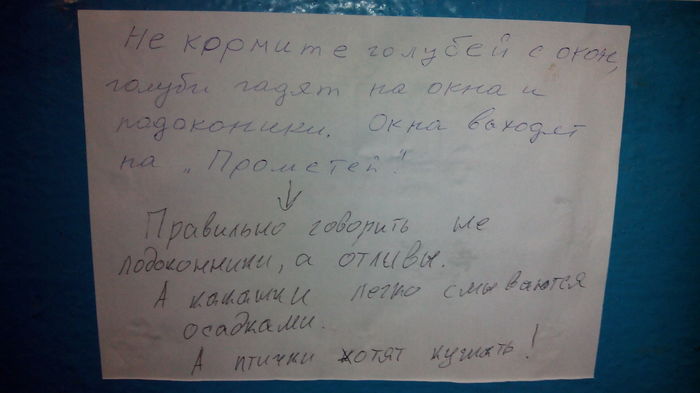 Не кормите голубей с окон,
голуби гадят на окна и
подоконики. Окна выходят
на „Прометей"!
Правильно говорить не
подоконники, а отливы.
А какашки легко смываются
осадками.
А птички хотят кушать!